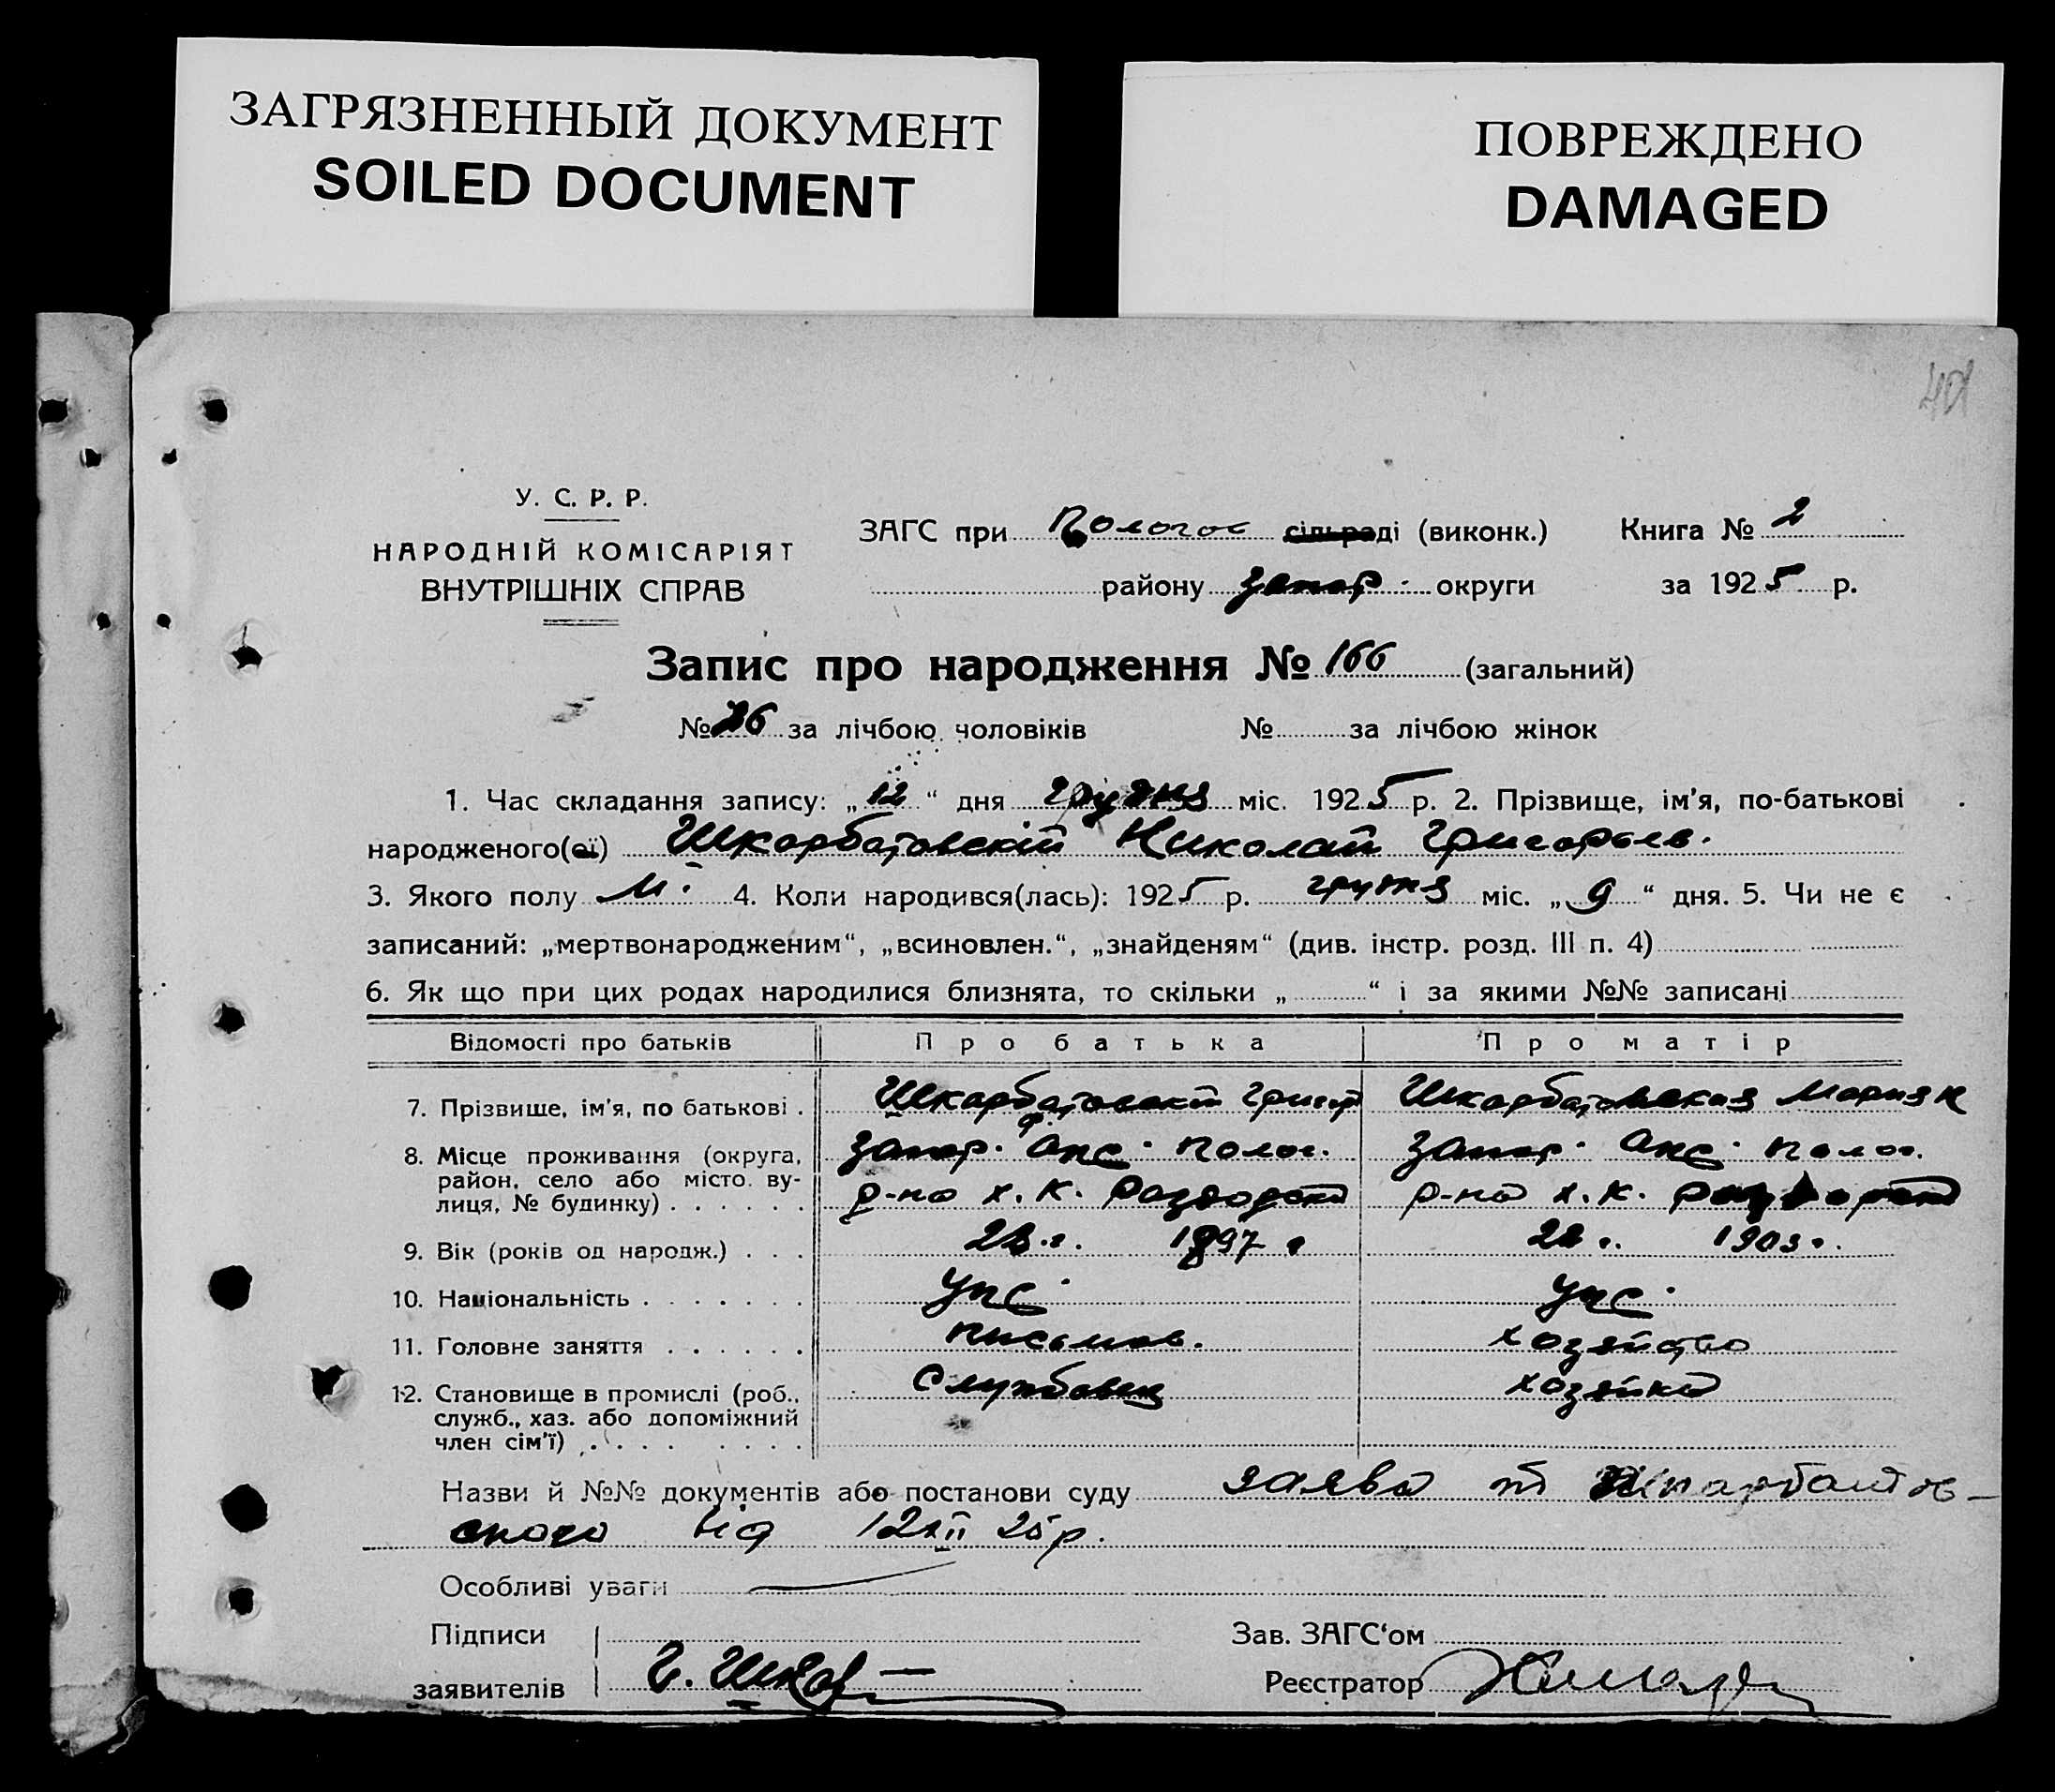 ЗАГРЯЗНЕННЫЙ ДОКУМЕНТ
SOILED DOCUMENT
ПОВРЕЖДЕНО
DAMAGED
У. С. Р. Р.
НАРОДНІЙ КОМІСАРІЯТ
ВНУТРІШНІХ СПРАВ
ЗАГС при Пологов сільраді (виконк.)
району Запор. округи
Книга № 2
за 1925 р.
Запис про народження № 166 (загальний)
№ 76 за лічбою чоловіків № за лічбою жінок
1. Час складання запису: „12“ дня грудня міс. 1925 р. 2. Прізвище, ім'я, по-батькові
народженого(ої) Шкарбатовскій Николай Григорьев.
3. Якого полу М. 4. Коли народився(лась): 1925 р. грудня міс. „9“ дня. 5. Чи не є
записаний: „мертвонародженим“, „всиновлен.“, „знайденям“ (див. інстр. розд. III п. 4)
6. Як що при цих родах народилися близнята, то скільки „ “ і за якими №№ записані
Відомості про батьків Про батька Про матір
7. Прізвище, ім'я, по батькові . Шкарбатовскій Григор Шкарбатовская Мария К
8. Місце проживання (округа, район, село або місто. вулиця, № будинку) Запор. Окр. Полог. Запор. Окр. Полог.
р-на х. К. р-на х. К.
9. Вік (років од народж.) . . . 28 г. 1897 г 22 г. 1903 г.
10. Національність . . . . . . . Укр. Укр.
11. Головне заняття . . . . . . письмов. хозяйство
12. Становище в промислі (роб., служб., хаз. або допоміжний член сім'ї) Службовец хозяйка
Назви й №№ документів або постанови суду заява т Шкарбатов-
ского від 12 XII 25 р.
Особливі уваги
Підписи
заявителів Г. Шкар
Зав. ЗАГС'ом
Реєстратор